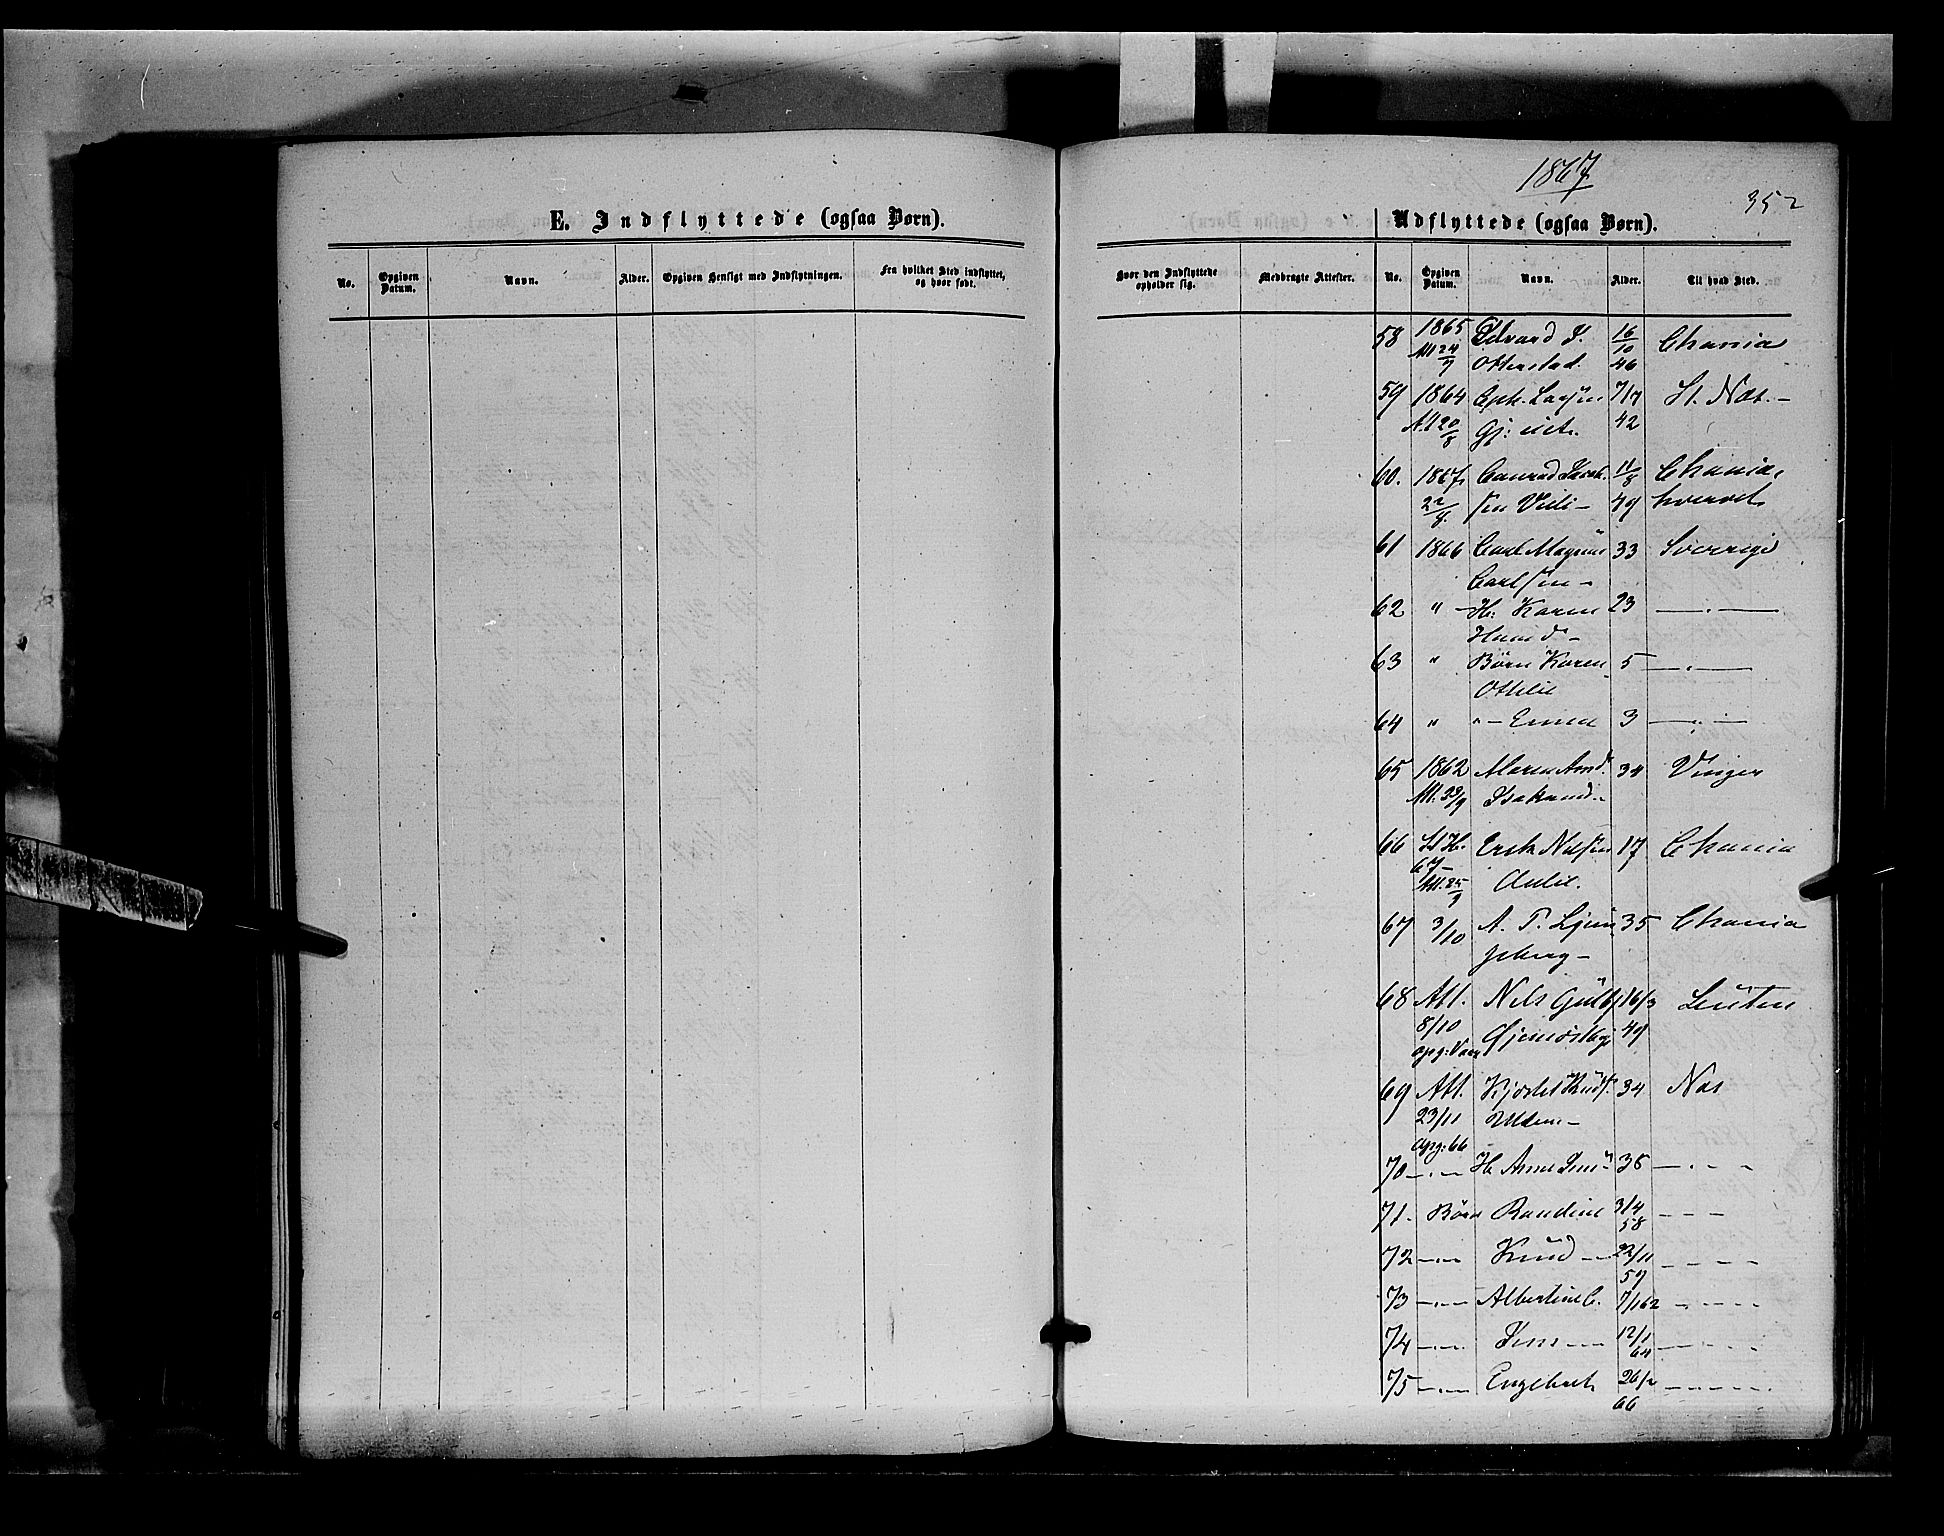 1867
352
E. Indflyttede (ogsaa Børn).
Udflyttede (ogsaa Børn).
No. Opgiven Datum. Navn. Alder. Opgiven Hensigt med Indflytningen. Fra hvilket Sted indflyttet, og hvor født.
Hvor den Indflyttede opholder sig. Medbragte Attester. No. Opgiven Datum. Navn. Alder. Til hvad Sted.
58 1865 Edvard J. 16/10 Chania
Att 24/9 Otterstad. 46
59 1864 Eph. Larsen 7/7 St. Næs.-
Att 20/8 42
60. 1867 Conrad Jacob- 11/8 Chania,
22/8. sen - 49
61 1866 Carl Magnus 33 Sverrige
Carlsen -
62 " - H: Karen 23 — " —
Hansd -
63 " Børn Karen 5 — " —
Othilie
64 " " - Emma 3 — " —
65 1862 Maren And. 34 Vinger
Att. 23/9 Isaksund.-
66 Erik Nilsen 17 Chania
67-
Att. 25/9
67 3/10 A. T. Ljun 35 Chania
gberg -
68 Att. Nils Gulb 16/3 Løiten
8/10 49
opg: Vaar
69 Att. Kjøstel Knuds. 34 Næs
23/11 -
Opg: 66
70 - " - H: Anne Jens 36 - " - -
71. Børn Randine 3/4 - - -
58
72 - " - Knud - 22/11 - - - -
59
73 - " - Albertine C. 7/1 62 - - - -
74 - " - Jens - 12/1 - - - -
64
75 - " - Engebret 26/2 - - - -
66